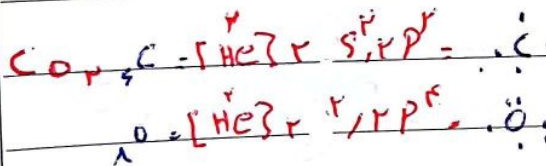 CO۲ ۶C = [۲He] ۲s۲, ۲p۲ = .Ċ.
۸O = [۲He] ۲ ۲, ۲p۴ = .Ö.